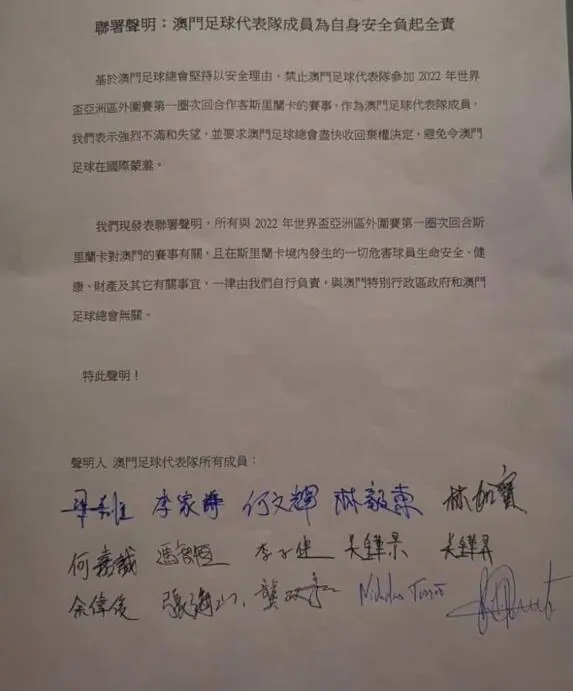 聯署聲明：澳門足球代表隊成員為自身安全負起全責
基於澳門足球總會堅持以安全理由，禁止澳門足球代表隊參加 2022 年世界
盃亞洲區外圍賽第一圈次回合作客斯里蘭卡的賽事，作為澳門足球代表隊成員，
我們表示強烈不滿和失望，並要求澳門足球總會盡快收回棄權決定，避免令澳門
足球在國際蒙羞。
我們現發表聯署聲明，所有與 2022 年世界盃亞洲區外圍賽第一圈次回合斯
里蘭卡對澳門的賽事有關，且在斯里蘭卡境內發生的一切危害球員生命安全、健
康、財產及其它有關事宜，一律由我們自行負責，與澳門特別行政區政府和澳門
足球總會無關。
特此聲明！
聲明人 澳門足球代表隊所有成員：
李家 何文輝 林毅東 林加寶
何嘉誠 李子健
余偉俊 張海山 龔